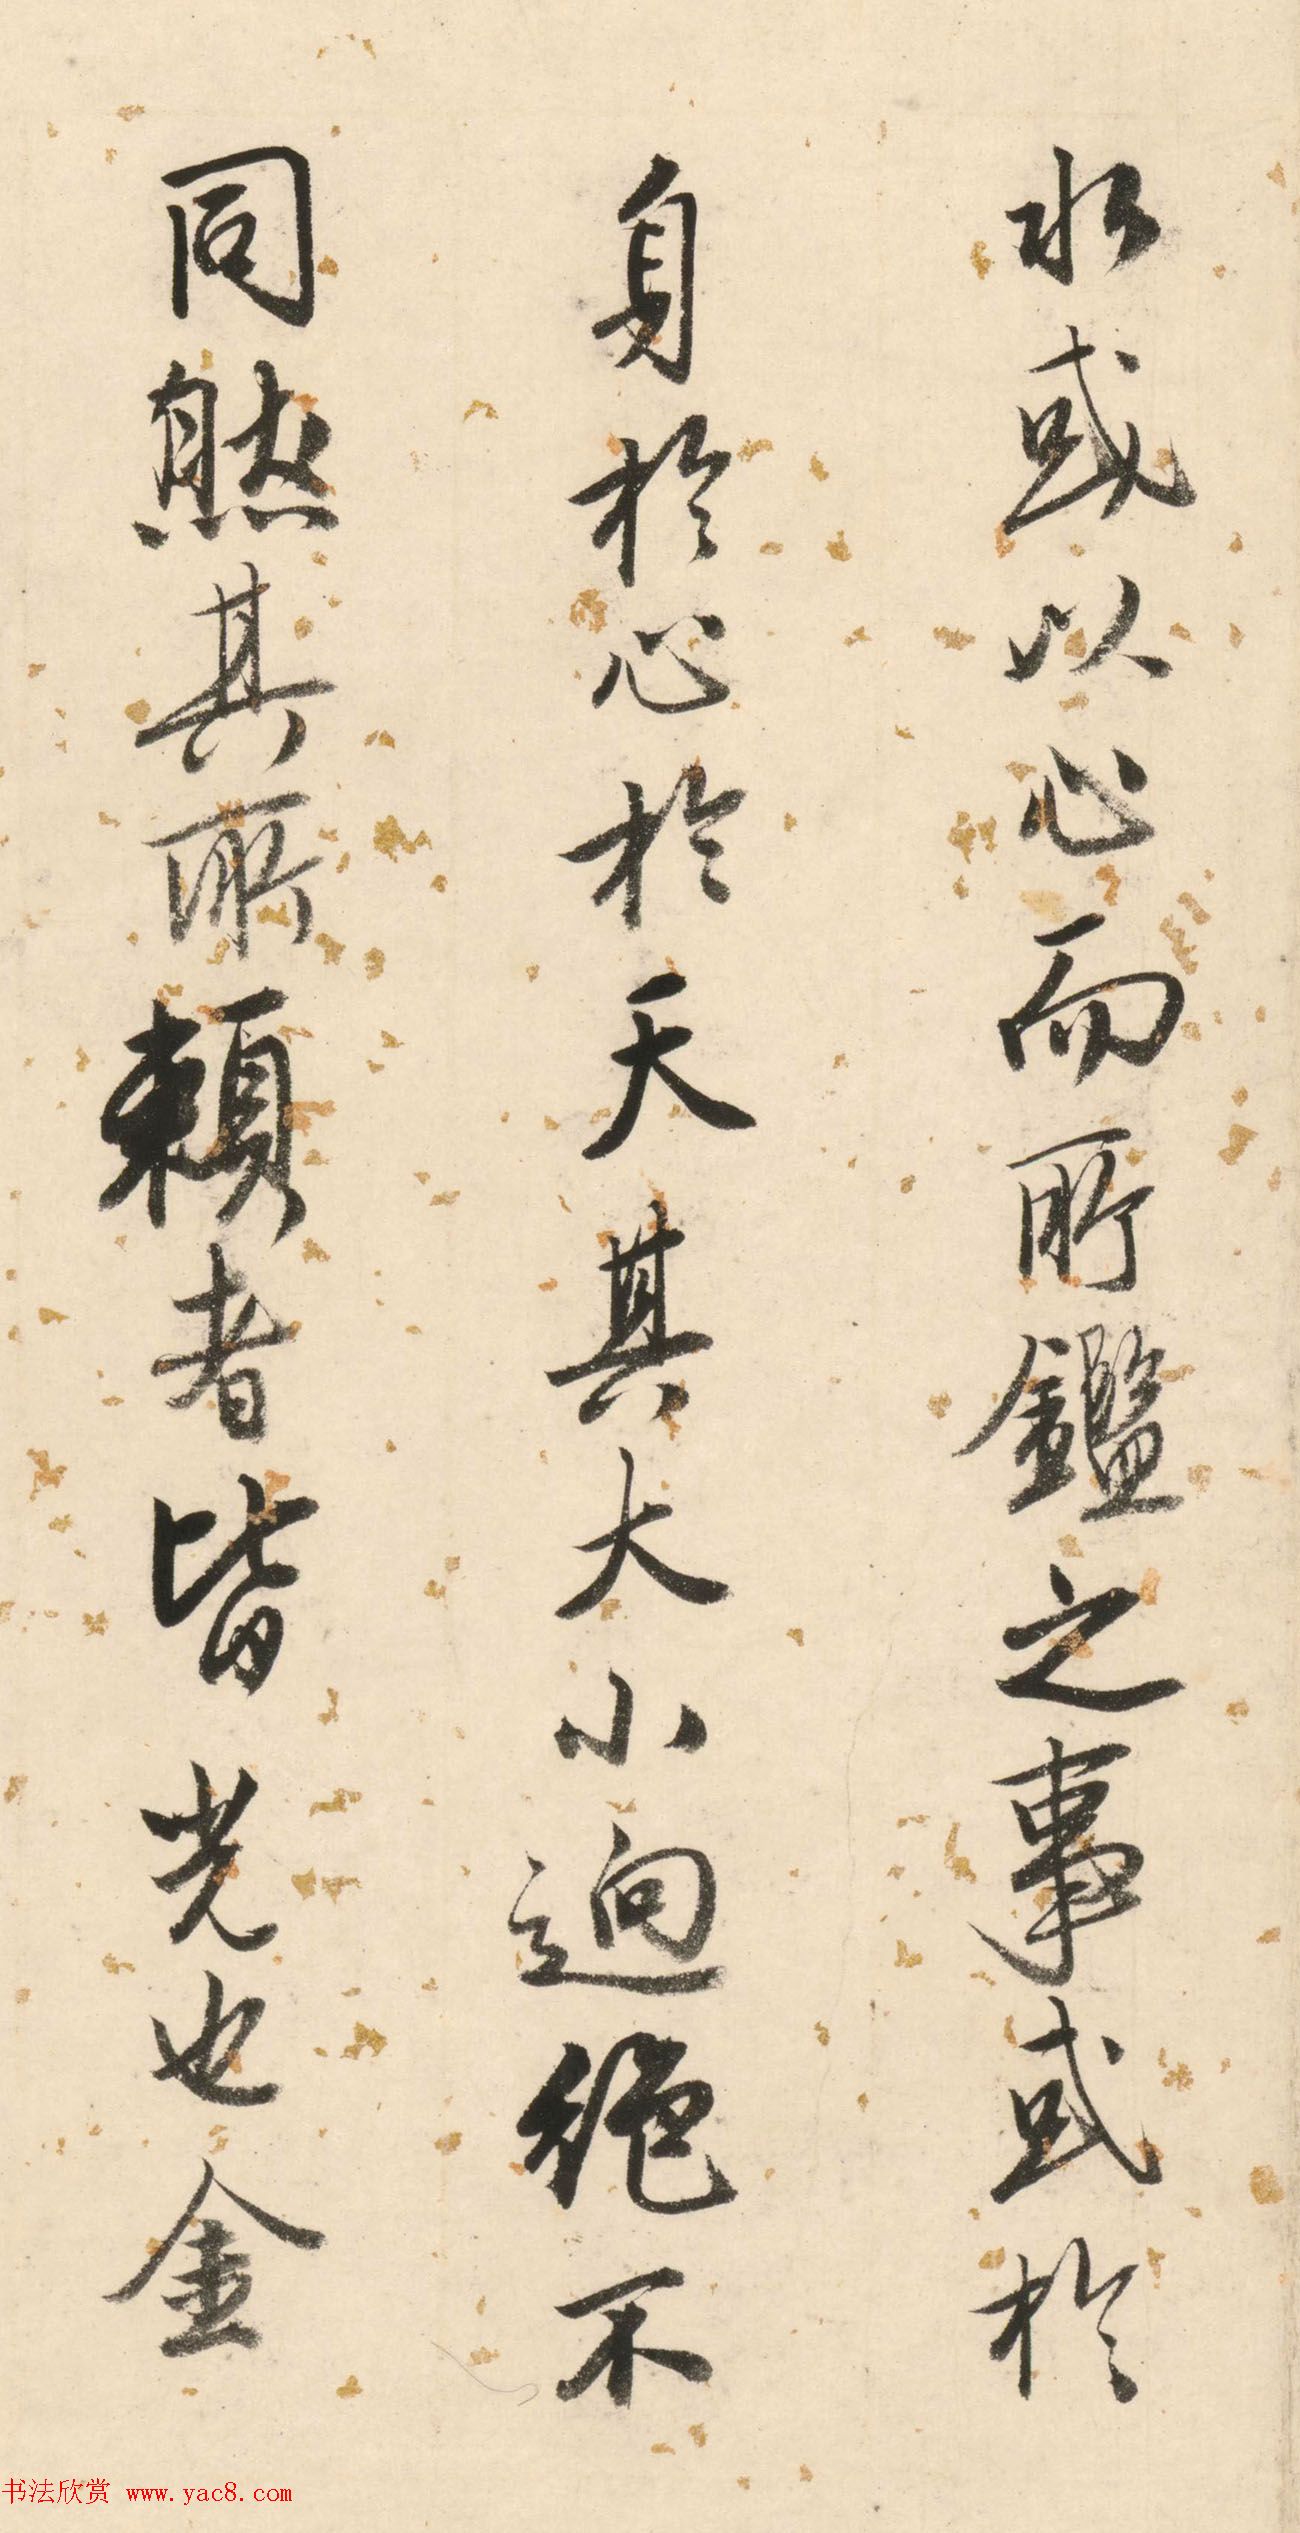 水或以心而所鑑之事或於
身於心於天其大小迥絶不
同然其所賴者皆光也金
书法欣赏 www.yac8.com